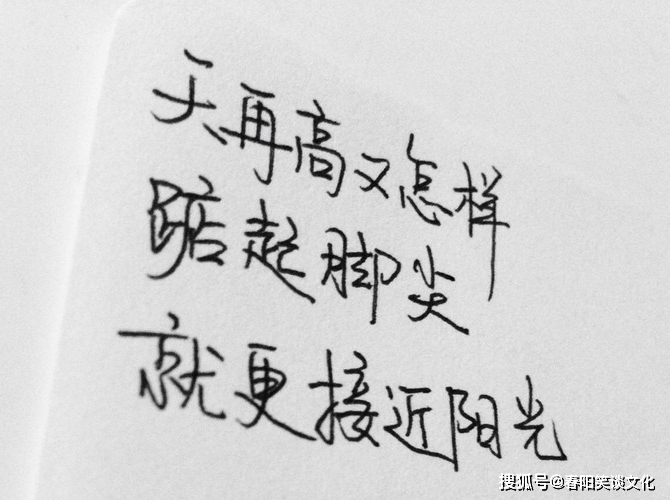 天再高又怎样
踮起脚尖
就更接近阳光
搜狐号@春阳笑谈文化